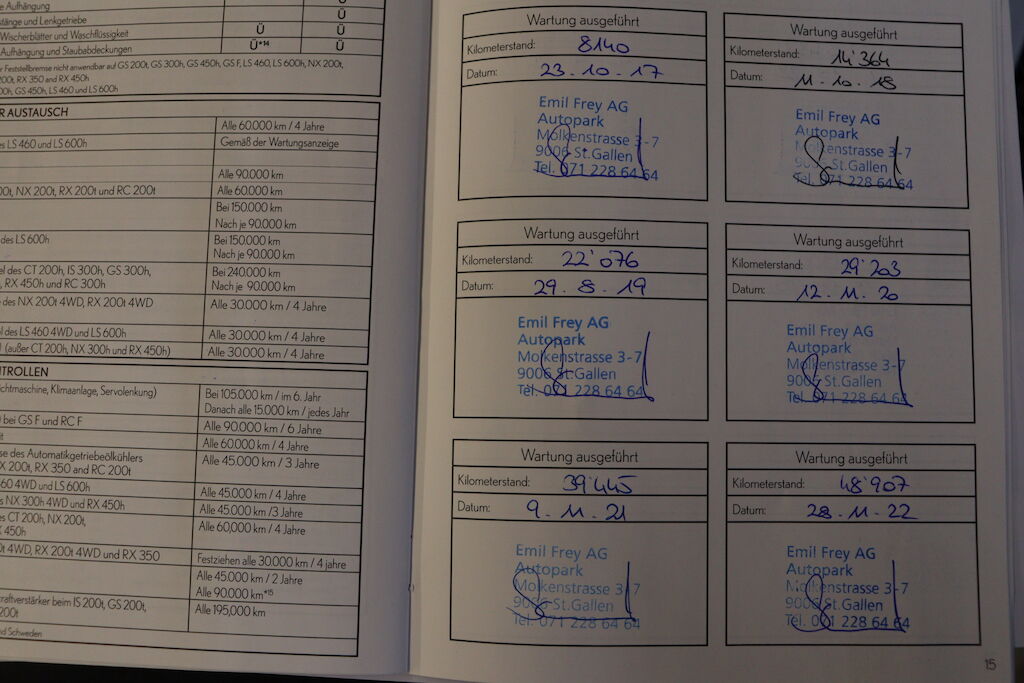 Aufhängung Ü
stänge und Lenkgetriebe Ü
Wischerblätter und Waschflüssigkeit Ü Ü
Aufhängung und Staubabdeckungen Ü*14 Ü
Feststellbremse nicht anwendbar auf GS 200t, GS 300h, GS 450h, GS F, LS 460, LS 600h, NX 200t,
200t, RX 350 and RX 450h
GS 450h, LS 460 und LS 600h
R AUSTAUSCH
Alle 60.000 km / 4 Jahre
LS 460 und LS 600h Gemäß der Wartungsanzeige
Alle 90.000 km
NX 200t, RX 200t und RC 200t Alle 60.000 km
Bei 150.000 km
Nach je 90.000 km
des LS 600h Bei 150.000 km
Nach je 90.000 km
des CT 200h, IS 300h, GS 300h, Bei 240.000 km
RX 450h und RC 300h Nach je 90.000 km
des NX 200t 4WD, RX 200t 4WD Alle 30.000 km / 4 Jahre
des LS 460 4WD und LS 600h Alle 30.000 km / 4 Jahre
(außer CT 200h, NX 300h und RX 450h) Alle 30.000 km / 4 Jahre
NTROLLEN
ichtmaschine, Klimaanlage, Servolenkung) Bei 105.000 km / im 6. Jahr
Danach alle 15.000 km / jedes Jahr
bei GS F und RC F Alle 90.000 km / 6 Jahre
Alle 60.000 km / 4 Jahre
se des Automatikgetriebeölkühlers Alle 45.000 km / 3 Jahre
X 200t, RX 350 and RC 200t
460 4WD und LS 600h Alle 45.000 km / 4 Jahre
NX 300h 4WD und RX 450h Alle 45.000 km /3 Jahre
CT 200h, NX 200t, Alle 60,000 km / 4 Jahre
450h
4WD, RX 200t 4WD und RX 350 Festziehen alle 30.000 km / 4 jahre
Alle 45.000 km / 2 Jahre
Alle 90.000 km*15
kraftverstärker beim IS 200t, GS 200t, Alle 195,000 km
200t
nd Schweden
Wartung ausgeführt
Kilometerstand: 8140
Datum: 23.10.17
Emil Frey AG
Autopark
Molkenstrasse 3-7
9006 St.Gallen
Tel. 071 228 64 64
Wartung ausgeführt
Kilometerstand: 14'364
Datum: 11.10.18
Emil Frey AG
Autopark
Molkenstrasse 3-7
9006 St.Gallen
Tel. 071 228 64 64
Wartung ausgeführt
Kilometerstand: 22'076
Datum: 29.8.19
Emil Frey AG
Autopark
Molkenstrasse 3-7
9006 St.Gallen
Tel. 071 228 64 64
Wartung ausgeführt
Kilometerstand: 29'203
Datum: 12.11.20
Emil Frey AG
Autopark
Molkenstrasse 3-7
9006 St.Gallen
Tel. 071 228 64 64
Wartung ausgeführt
Kilometerstand: 39'445
Datum: 9.11.21
Emil Frey AG
Autopark
Molkenstrasse 3-7
9006 St.Gallen
Tel. 071 228 64 64
Wartung ausgeführt
Kilometerstand: 48'907
Datum: 28.11.22
Emil Frey AG
Autopark
Molkenstrasse 3-7
9006 St.Gallen
Tel. 071 228 64 64
15